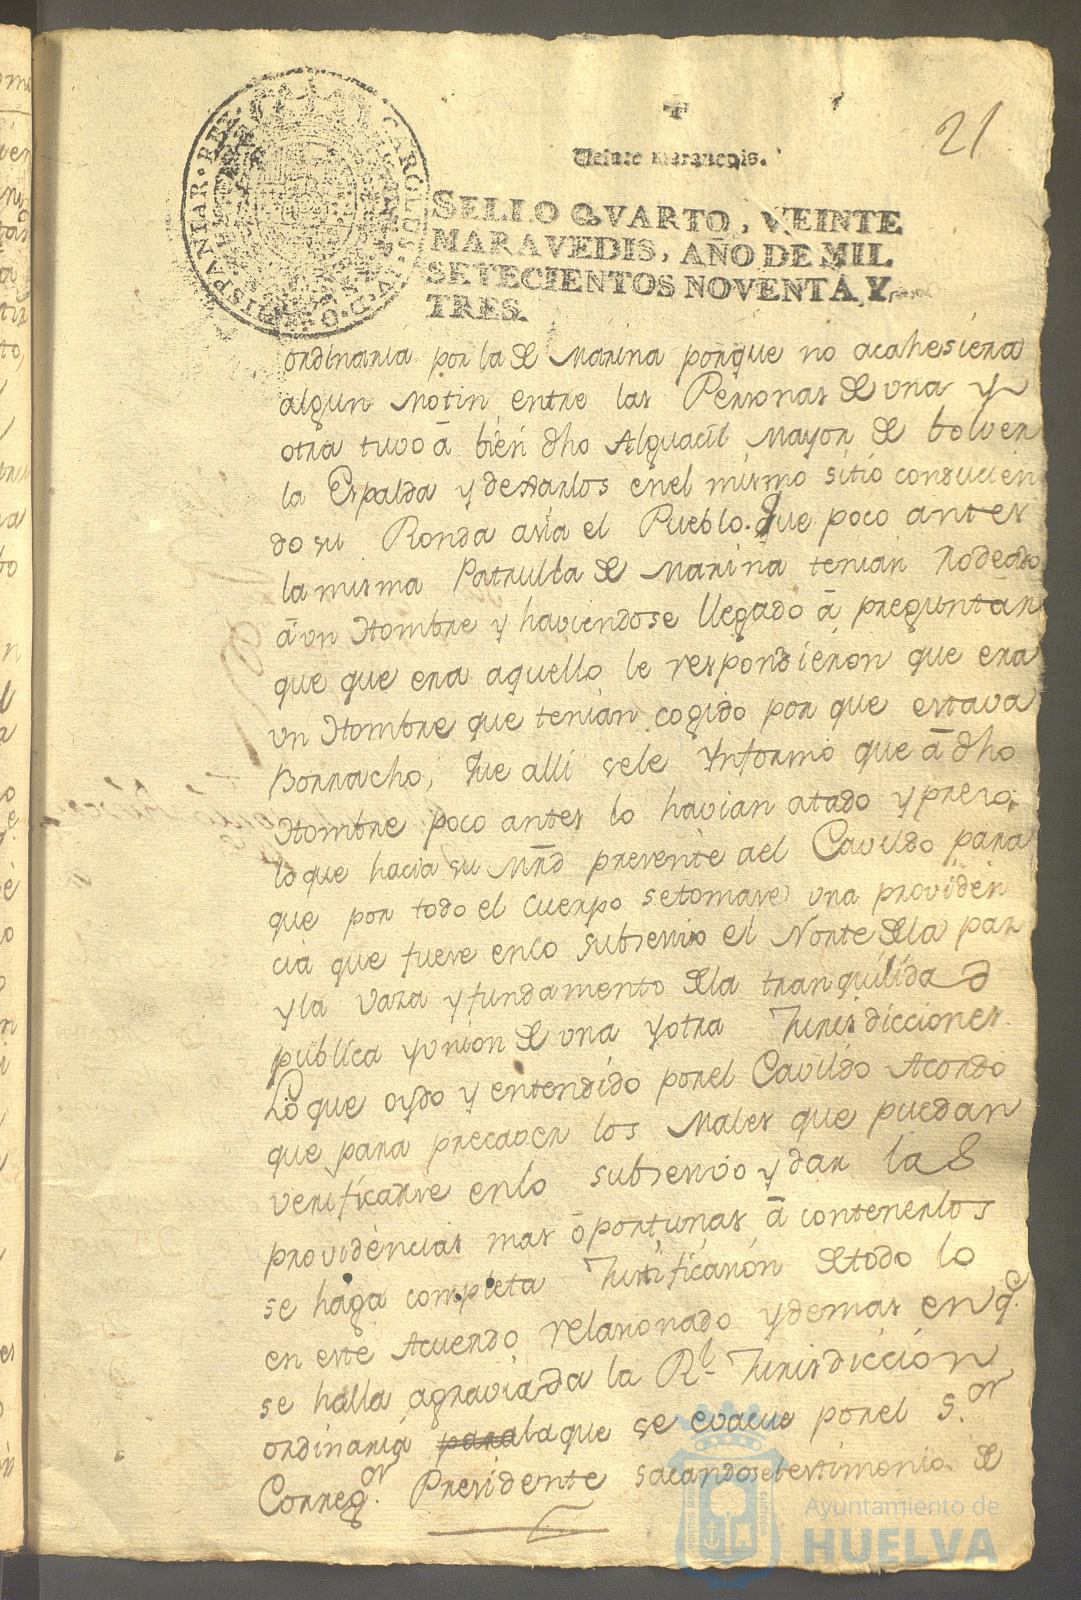 21
Veinte maravedis.
SELLO QVARTO, VEINTE
MARAVEDIS, AÑO DE MIL
SETECIENTOS NOVENTA Y
TRES.
CAROLUS IV D G HISPANIAR REX
ordinaria por la de Marina porque no acahesiera
algun Motin entre las Personas de una y
otra tuvo â bien dho Alguacil Mayor de bolver
la Espalda y dejarlos en el mismo sitio conducien
do su Ronda asia el Pueblo. Que poco antes
la misma Patrulla de Marina tenian Rodeado
â un Hombre y haviendose llegado â preguntar
que que era aquello le respondieron que era
un Hombre que tenian cogido por que estava
Borracho, Que alli se le Ynformó que â dho
Hombre poco antes lo havian atado y preso;
lo que hacia su Mrd presente a el Cavildo para
que por todo el cuerpo se tomase una providen
cia que fuese en lo subsesivo el Norte de la paz
y la vaza y fundamento de la tranquilidad
publica y union de una y otra Jurisdicciones
Lo que oydo y entendido por el Cavildo Acordo
que para precaver los Males que puedan
verificarse en lo subsesivo y dar las
providencias mas ôportunas â contenerlos
se haga completa Justificasion de todo lo
en este Acuerdo relasionado y demas en q.e
se halla agraviada la R.l Jurisdiccion
ordinaria para la que se evacue por el S.or
Correg.or Presidente sacandose testimonio de
Ayuntamiento de
HUELVA